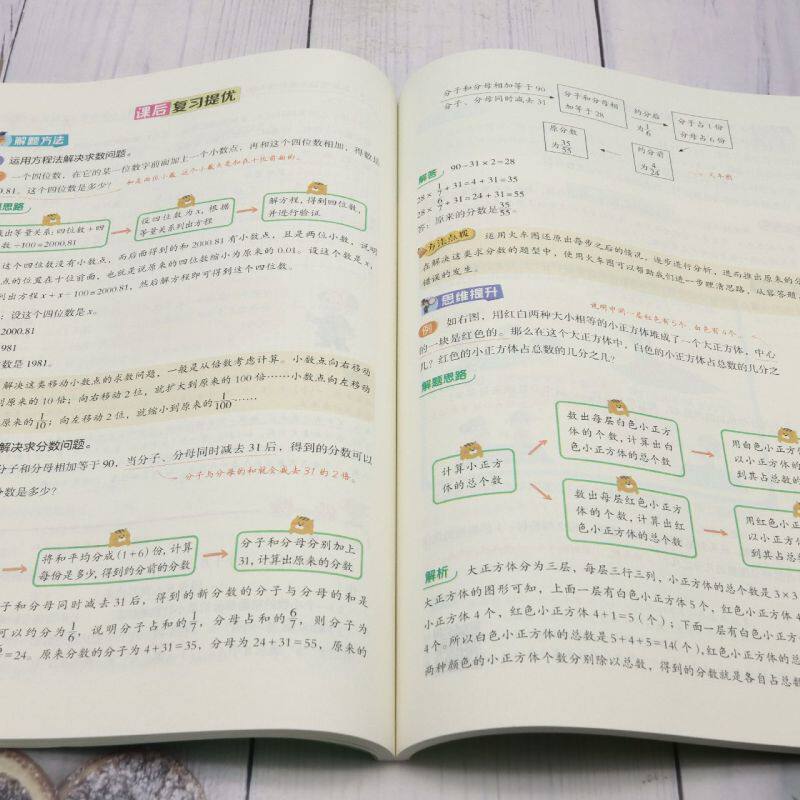 课后复习提优
解题方法
运用方程法解决求数问题。
一个四位数，在它的某一位数字前面加上一个小数点，再和这个四位数相加，得数是
0.81。这个四位数是多少？
和是两位小数，这个小数点是加在十位前面的。
思路
找出等量关系：四位数+四
数÷100=2000.81
设四位数为x，根据
等量关系列出方程
解方程，得到四位数，
并进行验证
这个四位数没有小数点，而后面得到的和2000.81有小数点，且是两位小数，说明
点的位置在十位前面，也就是说原来的四位数缩小为原来的0.01。设这个数是x，
列出方程x+x÷100=2000.81，然后解方程即可得到这个四位数。
：设这个四位数是x。
2000.81
981
数是1981。
解决这类移动小数点的求数问题，一般是从倍数考虑计算。小数点向右移动
到原来的10倍；向右移动2位，就扩大到原来的100倍……小数点向左移动
原来的1/10；向左移动2位，就缩小到原来的1/100……
解决求分数问题。
分子和分母相加等于90，当分子、分母同时减去31后，得到的分数可以
分数是多少？
分子与分母的和就会减去31的2倍。
将和平均分成(1+6)份，计算
每份是多少，得到约分前的分数
分子和分母分别加上
31，计算出原来的分数
子和分母同时减去31后，得到的新分数的分子与分母的和是
可以约分为1/6，说明分子占和的1/7，分母占和的6/7，则分子为
=24。原来分数的分子为4+31=35，分母为24+31=55，原来的
分子和分母相加等于90
分子、分母同时减去31
分子和分母相
加等于28
约分后
为1/6
分子占1份
分母占6份
原分数
为35/55
约分前
为4/24
火车图
解答
90-31×2=28
28×1/7+31=4+31=35
28×6/7+31=24+31=55
答：原来的分数是35/55。
方法点拨
运用火车图还原出每步之后的情况，逐步进行分析，进而推出原来的分
在解决这类求分数的题型中，使用火车图可以帮助我们进一步理清思路，从容答题
错误的发生。
思维提升
说明中间一层红色有5个，白色有4个。
例
如右图，用红白两种大小相等的小正方体堆成了一个大正方体，中心
的一块是红色的。那么在这个大正方体中，白色的小正方体占总数的几分之
几？红色的小正方体占总数的几分之几？
解题思路
计算小正方
体的总个数
数出每层白色小正方
体的个数，计算出白
色小正方体的总个数
用白色小正方
以小正方体的
到其占总数的
数出每层红色小正方
体的个数，计算出红
色小正方体的总个数
用红色小正
以小正方体
到其占总
解析
大正方体分为三层，每层三行三列，小正方体的总个数是3×3
大正方体的图形可知，上面一层有白色小正方体5个，红色小正方体4
小正方体4个，红色小正方体4+1=5(个)；下面一层有白色小正方
4个。所以白色小正方体的总数是5+4+5=14(个)，红色小正方体的总
两种颜色的小正方体个数分别除以总数，得到的分数就是各自占总数